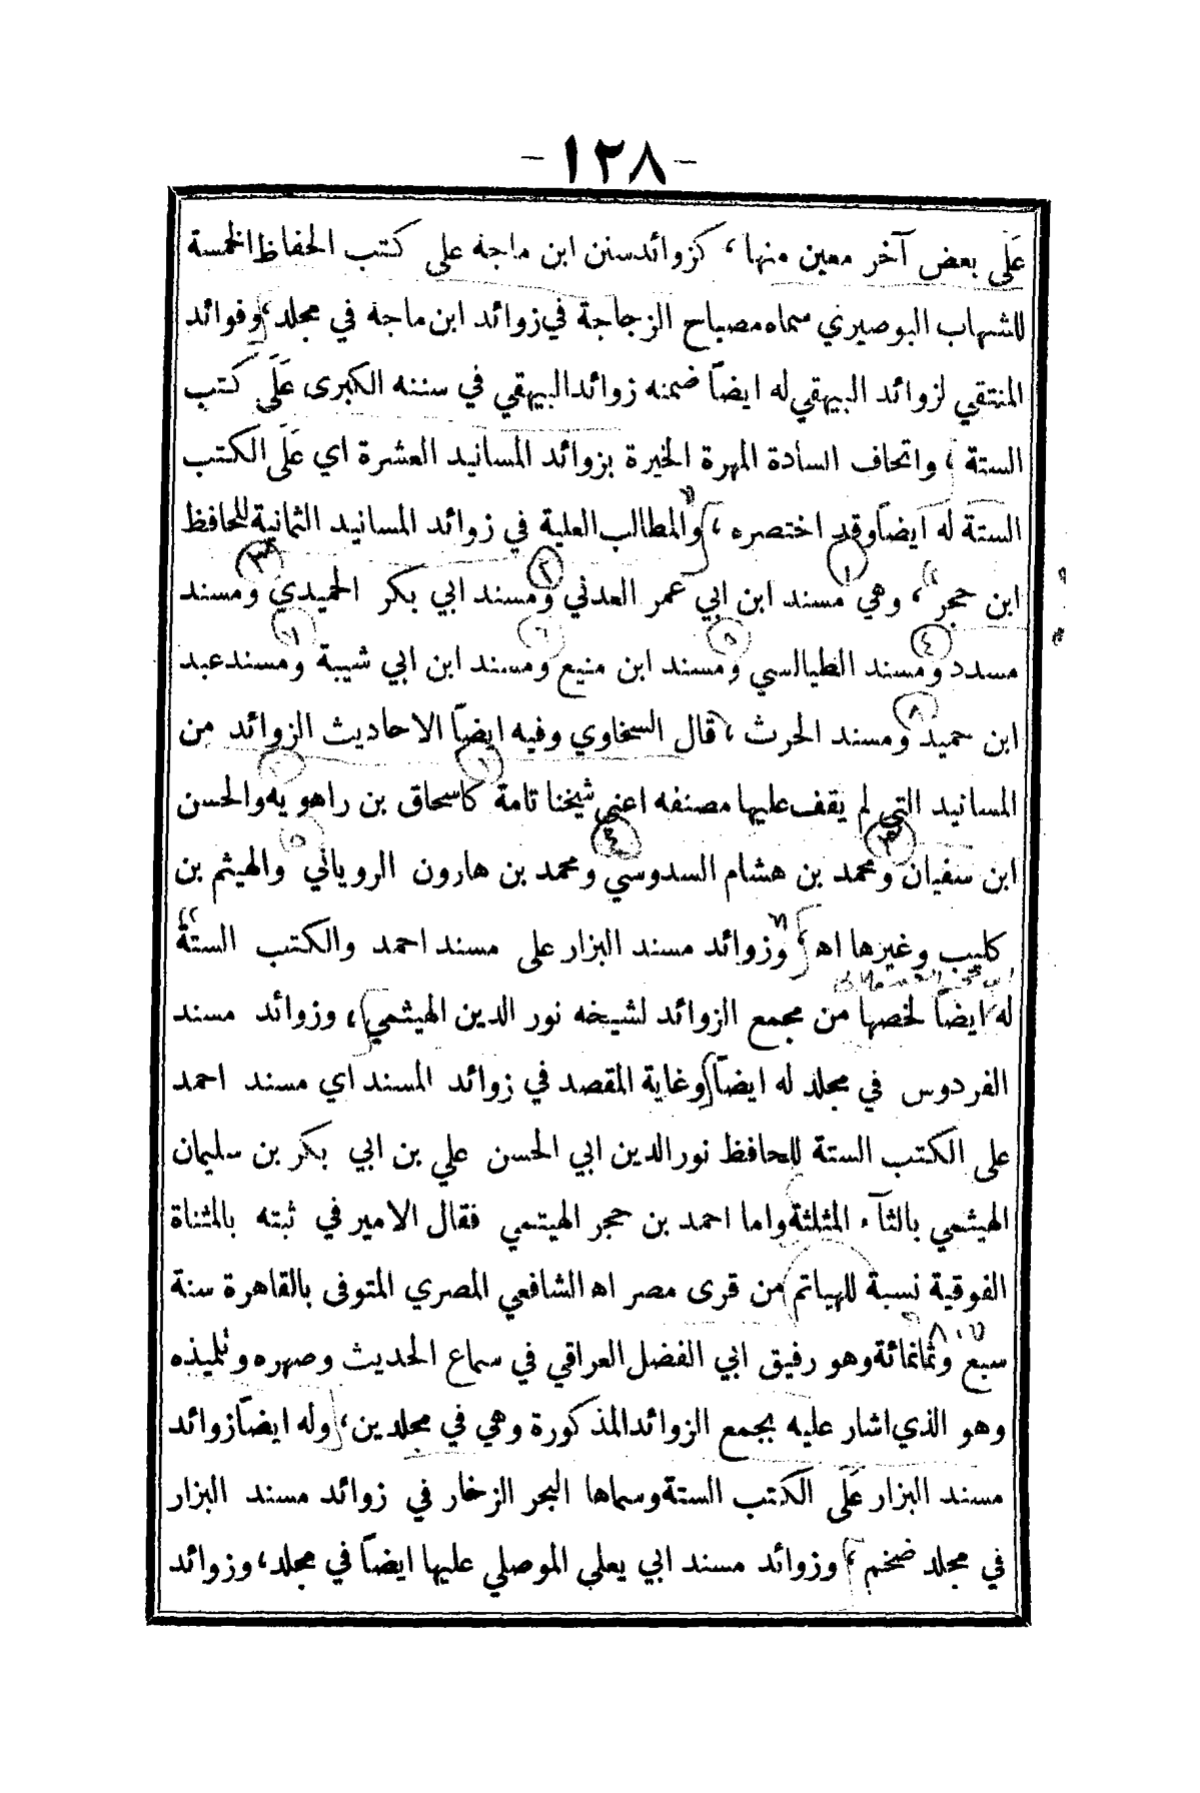 - ١٢٨ -
عَلَى بعض آخر معين منها ، كزوائد سنن ابن ماجه على كتب الحفاظ الخمسة
للشهاب البوصيري سماه مصباح الزجاجة في زوائد ابن ماجه في مجلد ، وفوائد
المنتقي لزوائد البيهقي له ايضاً ضمنه زوائد البيهقي في سننه الكبرى عَلَى كتب
الستة ، واتحاف السادة المهرة الخيرة بزوائد المسانيد العشرة اي عَلَى الكتب
الستة له ايضاً وقد اختصره ، والمطالب العلية في زوائد المسانيد الثمانية للحافظ
ابن حجر ، وهي مسند ابن ابي عمر العدني ومسند ابي بكر الحميدي ومسند
مسدد ومسند الطيالسي ومسند ابن منيع ومسند ابن ابي شيبة ومسند عبد
ابن حميد ومسند الحرث ، قال السخاوي وفيه ايضاً الاحاديث الزوائد من
المسانيد التي لم يقف عليها مصنفه اعني شيخنا تامة كاسحاق بن راهويه والحسن
ابن سفيان ومحمد بن هشام السدوسي ومحمد بن هارون الروياني والهيثم بن
كليب وغيرها اه ، وزوائد مسند البزار على مسند احمد والكتب الستة
له ايضاً لخصها من مجمع الزوائد لشيخه نور الدين الهيثمي ، وزوائد مسند
الفردوس في مجلد له ايضاً وغاية المقصد في زوائد المسند اي مسند احمد
على الكتب الستة للحافظ نور الدين ابي الحسن علي بن ابي بكر بن سليمان
الهيثمي بالثآء المثلثة واما احمد بن حجر الهيتمي فقال الامير في ثبته بالمثناة
الفوقية نسبة للهياتم من قرى مصر اه الشافعي المصري المتوفى بالقاهرة سنة
سبع وثمانمائة وهو رفيق ابي الفضل العراقي في سماع الحديث وصهره وتلميذه
وهو الذي اشار عليه بجمع الزوائد المذكورة وهي في مجلدين ، وله ايضاً زوائد
مسند البزار عَلَى الكتب الستة وسماها البحر الزخار في زوائد مسند البزار
في مجلد ضخم ، وزوائد مسند ابي يعلى الموصلي عليها ايضاً في مجلد ، وزوائد